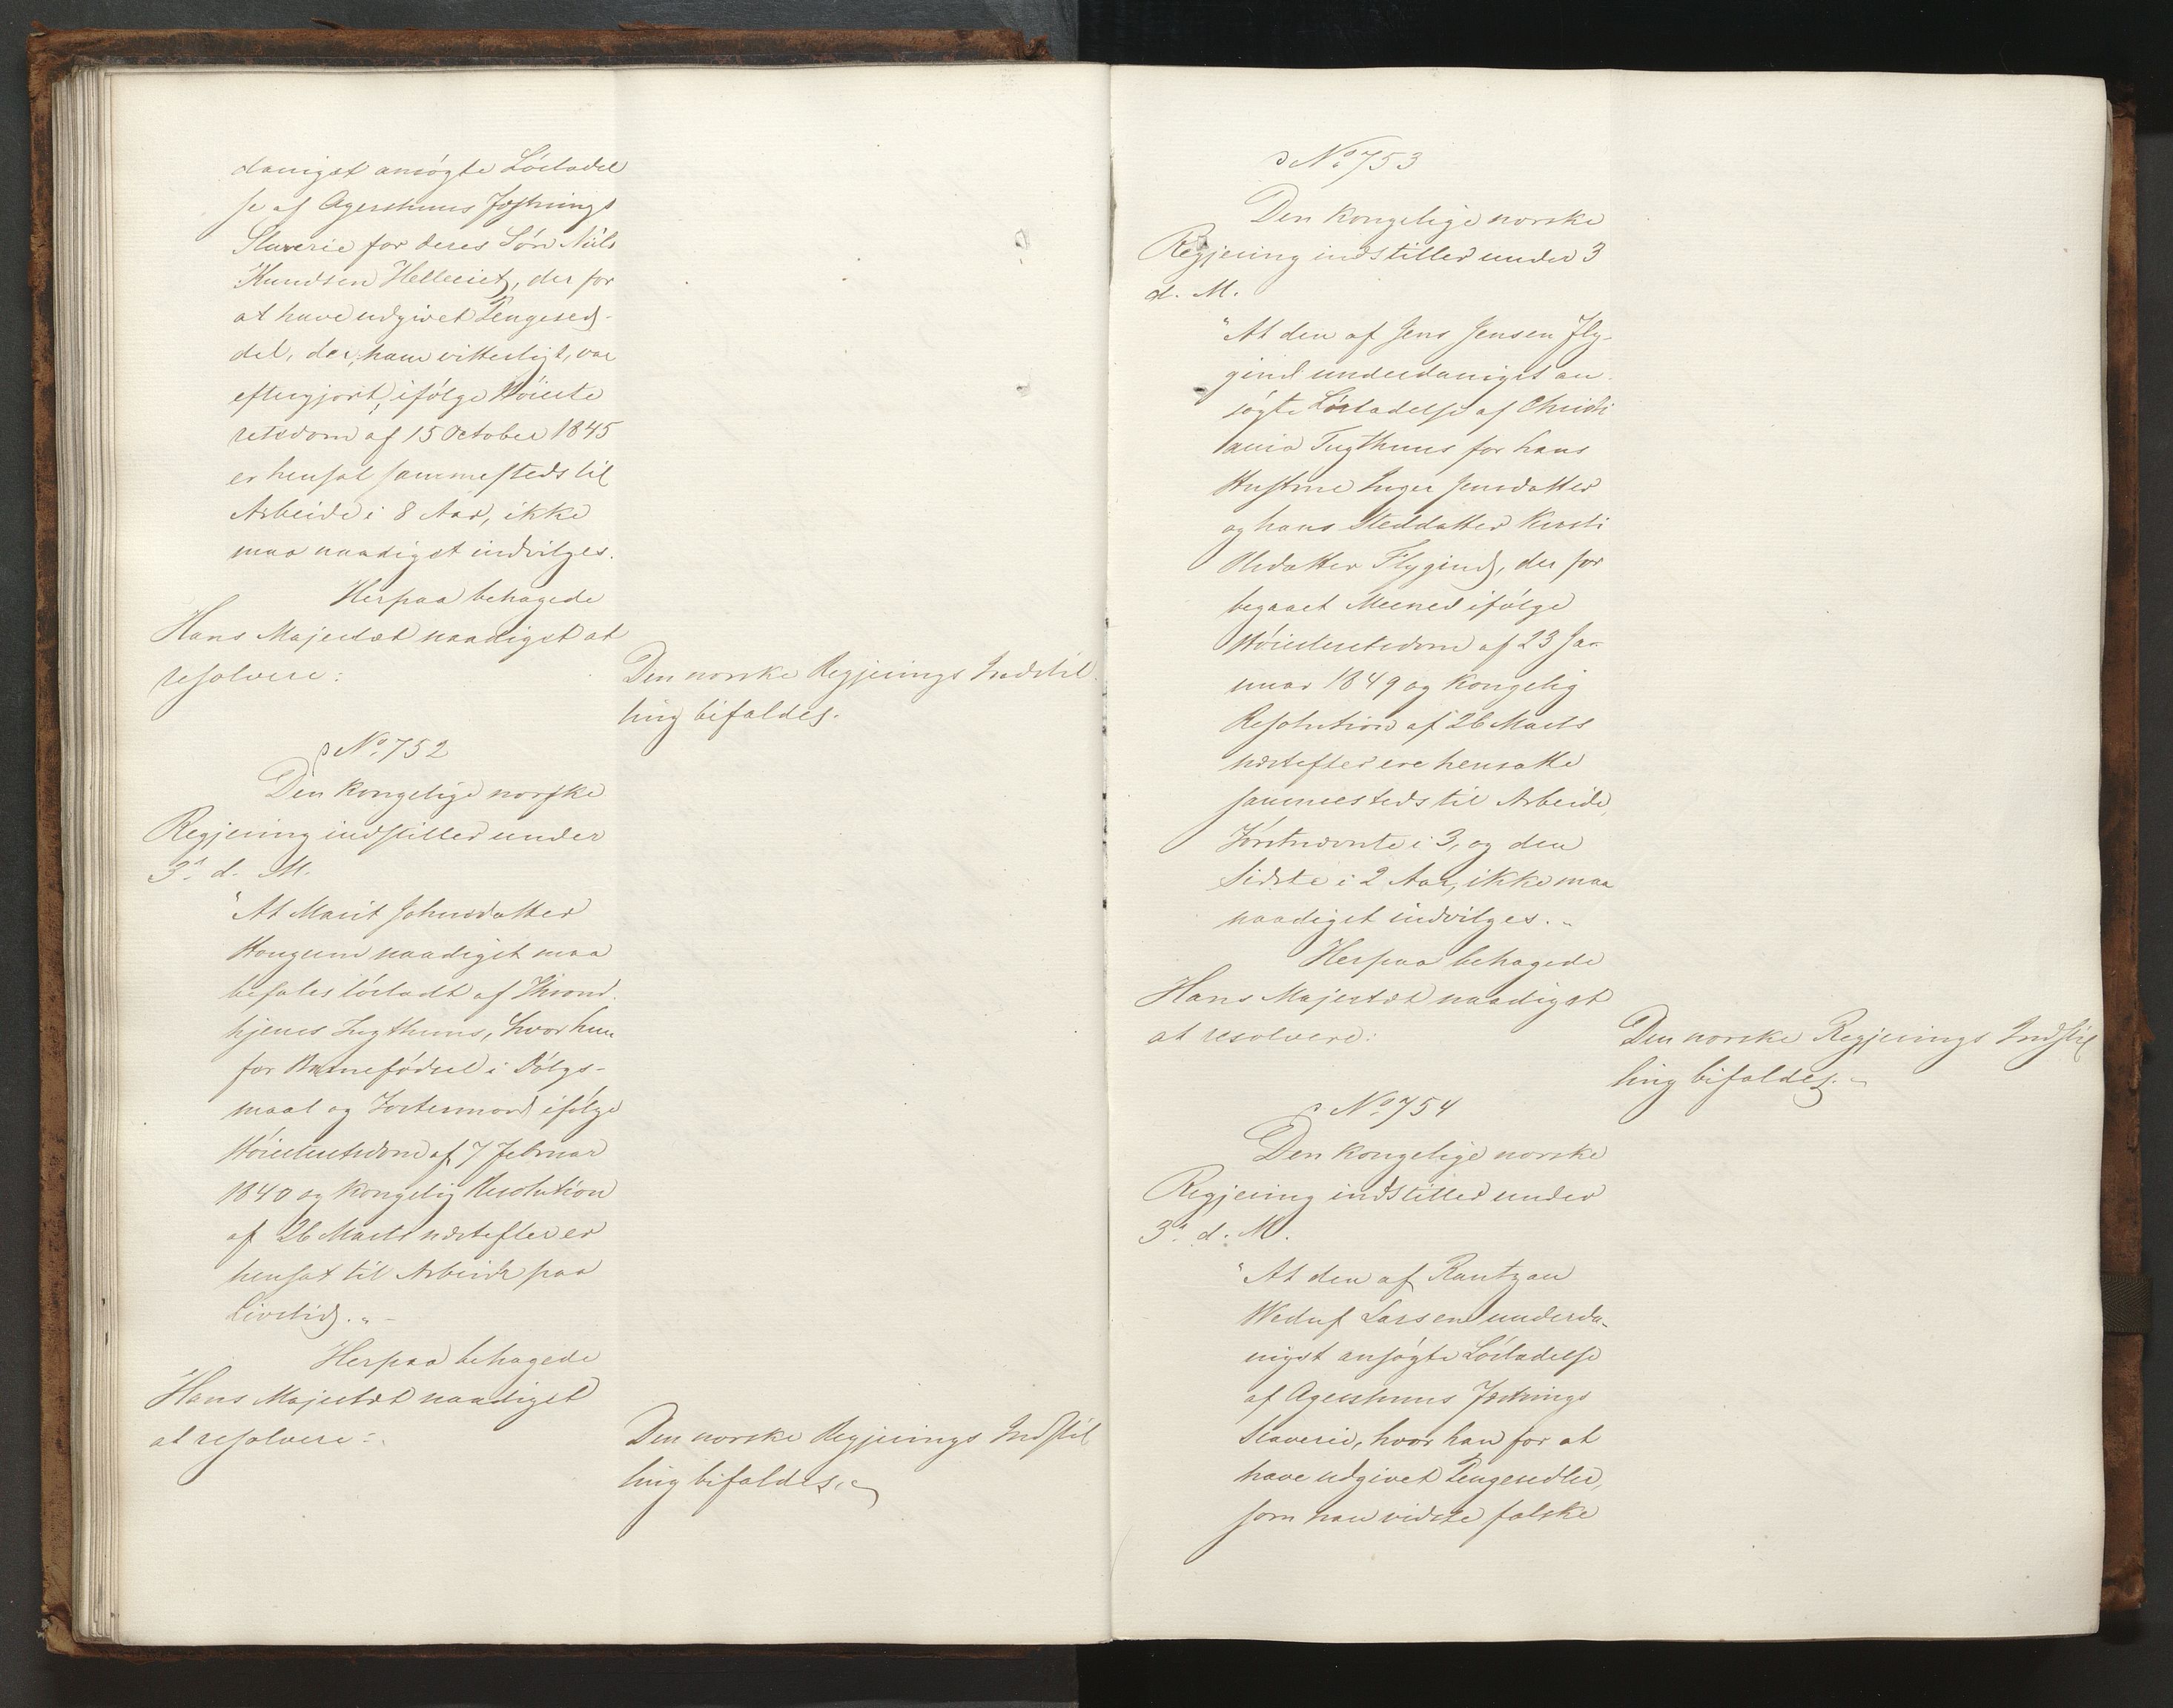 danigst ansøgte Løsladel
se af Agershuus Fæstnings
Slaverie for deres Søn Niels
Knudsen Helleeiet, der for
at have udgivet Pengesed-
del, der, ham vitterligt, var
eftergjort, ifølge Høieste
retsdom af 15 October 1845
er hensat sammesteds til
Arbeide i 8 Aar, ikke
maa naadigst indvilges.
Herpaa behagede
Hans Majestæt naadigst at
resolvere:
Den norske Regjerings Indstil
ling bifaldes.
No. 752
Den kongelige norske
Regjering indstiller under
3. d. M.
"At Marit Johnsdatter
naadigst maa
befales løsladt af Thrond
hjems Tugthuus, hvor hun
for Barnefødsel i Dølgs-
maal og Fostermord ifølge
Høiesteretsdom af 7 Februar
1840 og kongelig Resolution
af 26 Marts næstefter er
hensat til Arbeide paa
Livstid."
Herpaa behagede
Hans Majestæt naadigst
at resolvere:
Den norske Regjerings Indstil
ling bifaldes.
No. 753
Den kongelige norske
Regjering indstiller under 3
d. M.
"At den af Jens Jensen Fly-
gind underdanigst an-
søgte Løsladelse af Christi
ania Tugthuus for hans
Hustrue Inger Jensdatter
og hans Steddatter Kersti
Olsdatter Flygind, der for
begaaet Meened ifølge
Høiesteretsdom af 23 Ja-
nuar 1849 og kongelig
Resolution af 26 Marts
næstefter ere hensatte
sammesteds til Arbeide,
Førstnævnte i 3, og den
Sidste i 2 Aar, ikke maa
naadigst indvilges."
Herpaa behagede
Hans Majestæt naadigst
at resolvere:
Den norske Regjerings Indstil
ling bifaldes.
No. 754
Den kongelige norske
Regjering indstiller under
3. d. M.
"At den af Rantzau
Larsen underda-
nigst ansøgte Løsladelse
af Agershuus Fæstnings
Slaverie, hvor han for at
have udgivet Pengesedler,
som han vidste falske